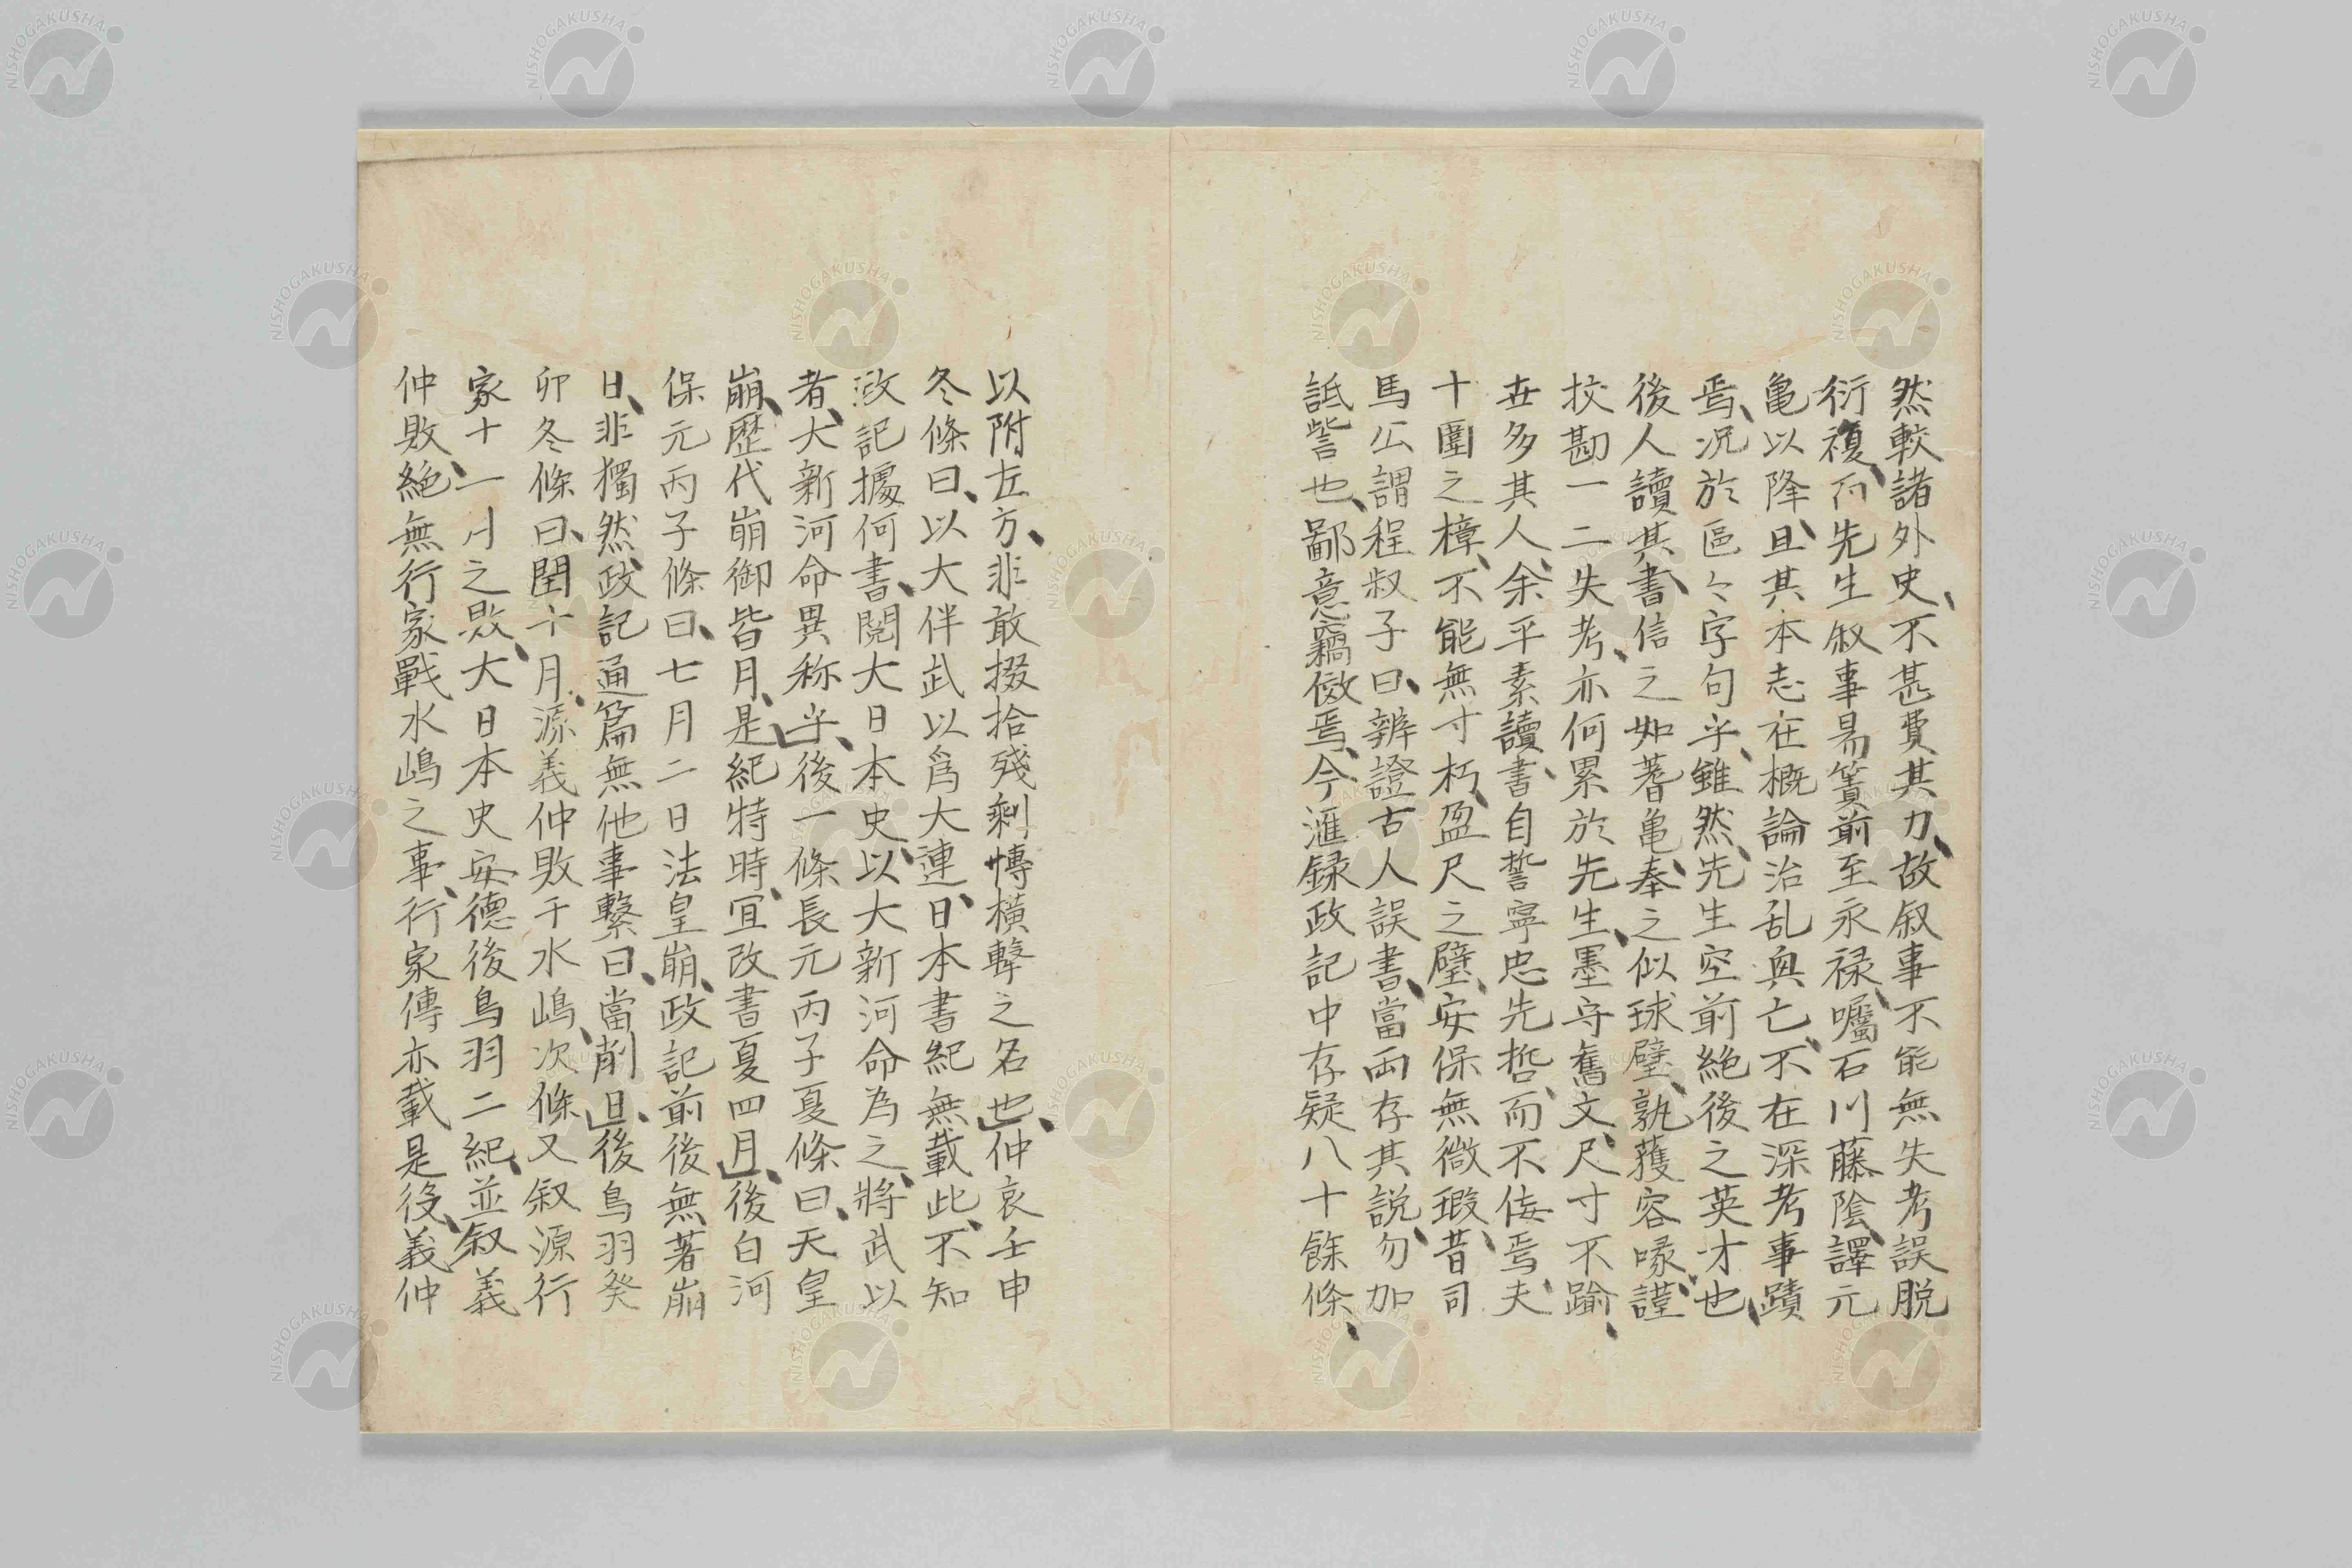 然較諸外史、不甚費其力、故叙事不能無失考誤脱
衍複、而先生叙事易簀前至永禄、囑石川藤陰、譯元
亀以降、且其本志在概論治乱興亡、不在深考事蹟
焉、况於區々字句乎、雖然、先生空前絶後之英才也、
後人讀其書、信之如蓍亀、奉之似球璧、孰獲容喙、謹
挍勘一二失考、亦何累於先生、墨守舊文、尺寸不踰、
世多其人、余平素讀書、自誓寧忠先哲、而不佞焉、夫
十圍之樟、不能無寸朽、盈尺之璧、安保無微瑕、昔司
馬公謂程叔子曰、辨證古人誤書、當両存其説、勿加
詆訾也、鄙意竊倣焉、今滙録政記中存疑八十餘條、
以附左方、非敢掇拾殘剰博横撃之名也、仲哀壬申
冬條曰、以大伴武以爲大連、日本書紀無載此、不知
政記據何書、閲大日本史、以大新河命為之、將武以
者、大新河命異称乎、後一條長元丙子夏條曰、天皇
崩、歴代崩御皆月、是紀特時、宜改書夏四月、後白河
保元丙子條曰、七月二日法皇崩、政記前後無著崩
日、非獨然、政記通篇無他事繋日、當削且、後鳥羽癸
卯冬條曰、閏十月、源義仲敗于水嶋、次條又叙源行
家十一月之敗、大日本史安德後鳥羽二紀、並叙義
仲敗絶無行家戰水嶋之事、行家傳亦載是役、義仲